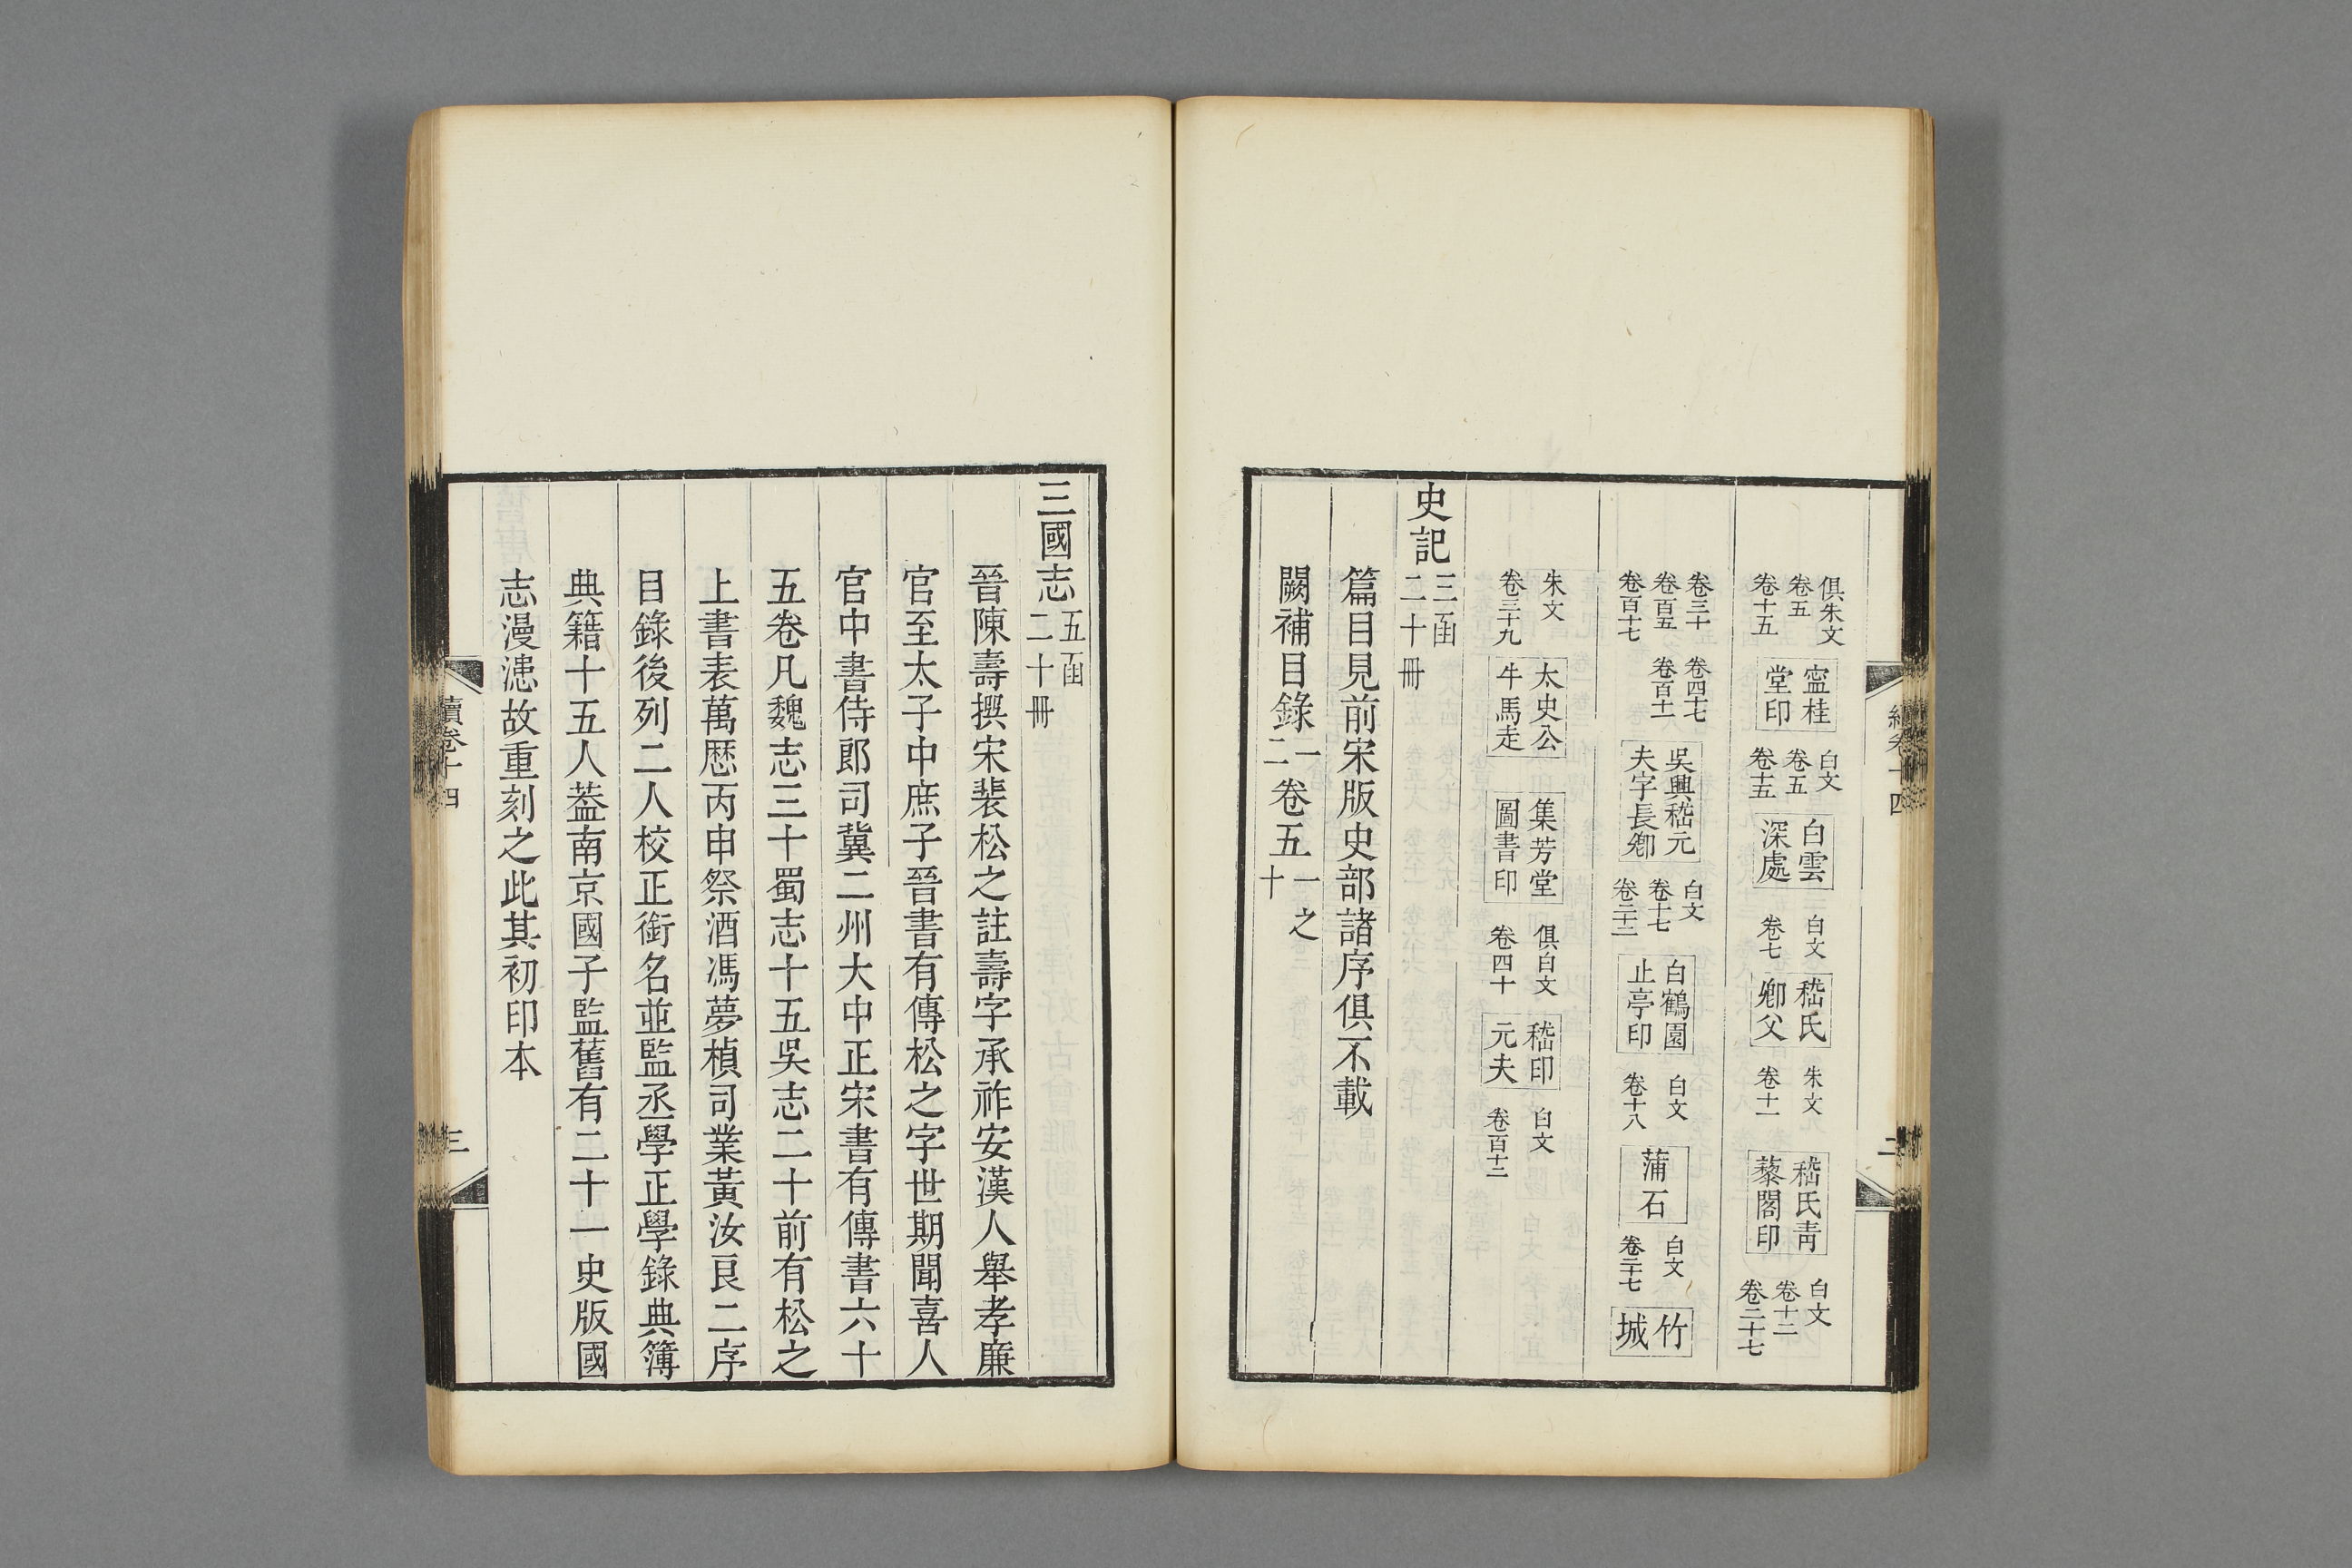 俱朱文 卷五 卷十五 寍桂堂印 白文 卷五 卷十五 白雲深處 白文 卷七 嵇氏卿父 朱文 卷十一 嵇氏靑藜閣印 白文 卷十二 卷二十七
卷三十 卷四十七 卷百五 卷百十一 卷百十七 吳興嵇元夫字長卿 白文 卷十七 卷二十二 白鶴園止亭印 白文 卷十八 蒲石 白文 卷二十七 竹城
朱文 卷三十九 太史公牛馬走 集芳堂圖書印 俱白文 卷四十 嵇印元夫 白文 卷百十二
史記 三函 二十冊
篇目見前宋版史部諸序俱不載
闕補目錄 一二 卷五 一之十
續卷十四
二
三國志 五函 二十冊
晉陳壽撰宋裴松之註壽字承祚安漢人舉孝廉
官至太子中庶子晉書有傳松之字世期聞喜人
官中書侍郎司冀二州大中正宋書有傳書六十
五卷凡魏志三十蜀志十五吳志二十前有松之
上書表萬歷丙申祭酒馮夢楨司業黃汝良二序
目錄後列二人校正銜名並監丞學正學錄典簿
典籍十五人葢南京國子監舊有二十一史版國
志漫漶故重刻之此其初印本
續卷十四
三